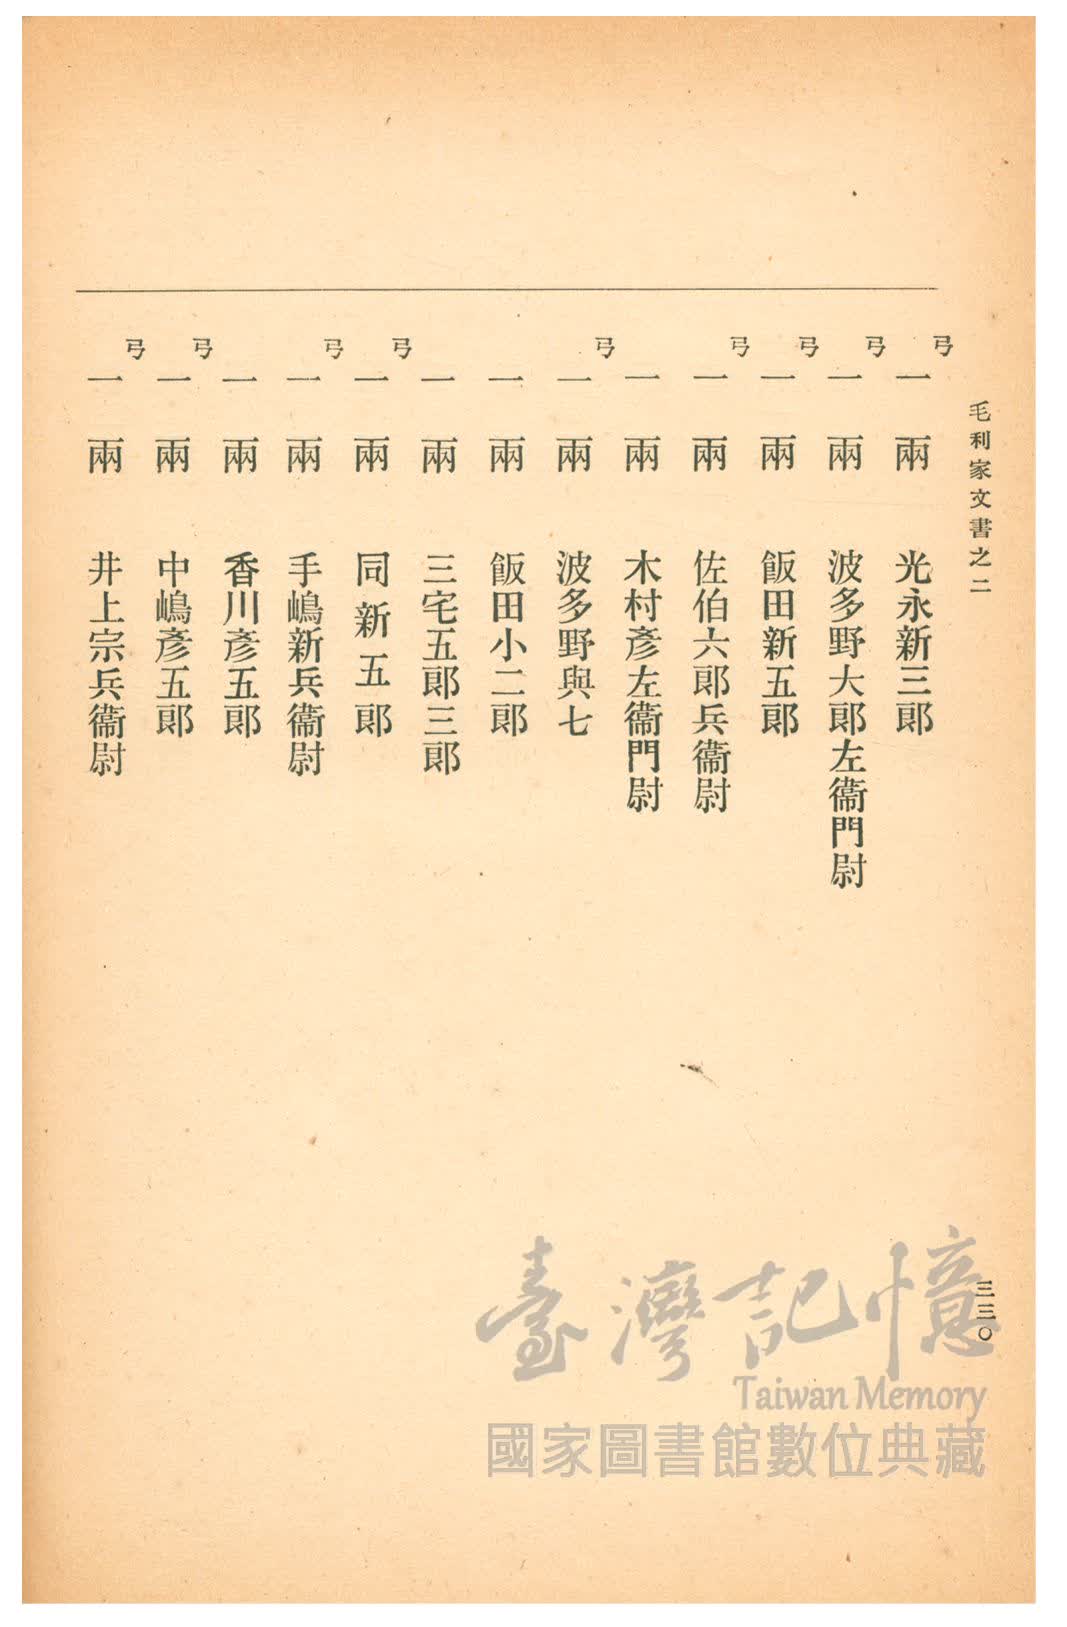 毛利家文書之二
三三〇
弓一兩 光永新三郎
弓一兩 波多野大郎左衞門尉
弓一兩 飯田新五郎
弓一兩 佐伯六郎兵衞尉
一兩 木村彥左衞門尉
弓一兩 波多野與七
一兩 飯田小二郎
一兩 三宅五郎三郎
弓一兩 同新五郎
弓一兩 手嶋新兵衞尉
一兩 香川彥五郎
弓一兩 中嶋彥五郎
弓一兩 井上宗兵衞尉
臺灣記憶
Taiwan Memory
國家圖書館數位典藏